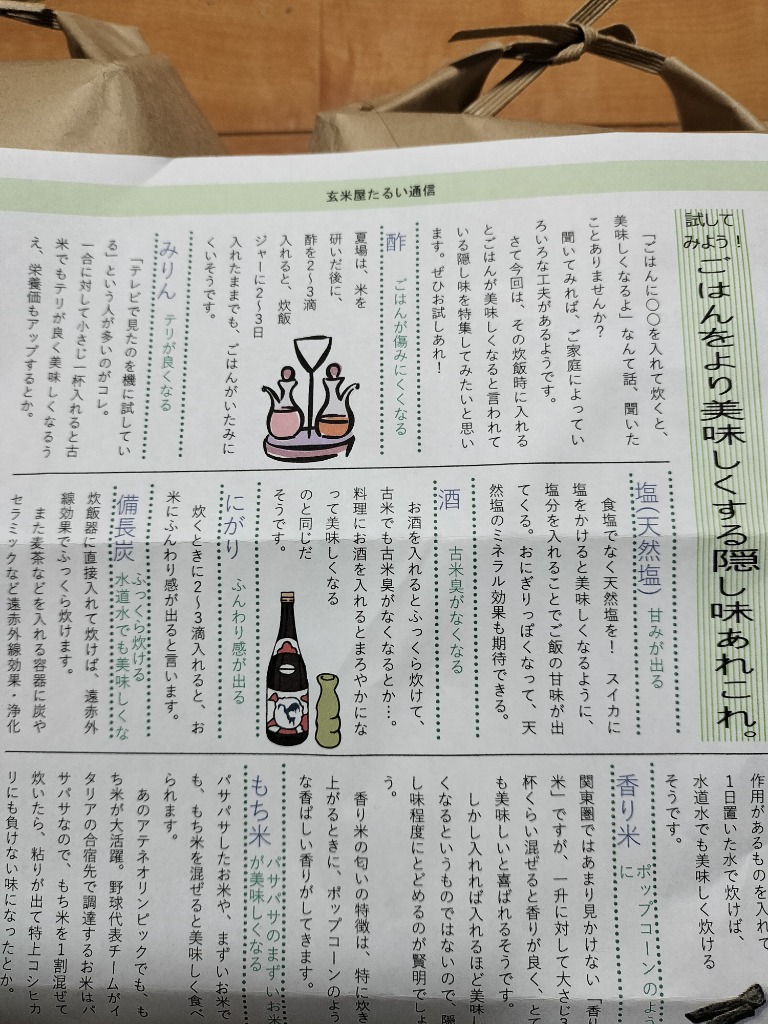 玄米屋たるい通信
試して
みよう！
ごはんをより美味しくする隠し味あれこれ。
「ごはんに〇〇を入れて炊くと、
美味しくなるよ」なんて話、聞いた
ことありませんか？
聞いてみれば、ご家庭によってい
ろいろな工夫があるようです。
さて今回は、その炊飯時に入れる
とごはんが美味しくなると言われて
いる隠し味を特集してみたいと思い
ます。ぜひお試しあれ！
酢
ごはんが傷みにくくなる
夏場は、米を
研いだ後に、
酢を2～3滴
入れると、炊飯
ジャーに2～3日
入れたままでも、ごはんがいたみに
くいそうです。
みりん
テリが良くなる
「テレビで見たのを機に試してい
る」という人が多いのがコレ。
一合に対して小さじ一杯入れると古
米でもテリが良く美味しくなるう
え、栄養価もアップするとか。
塩(天然塩)
甘みが出る
食塩でなく天然塩を！　スイカに
塩をかけると美味しくなるように、
塩分を入れることでご飯の甘味が出
てくる。おにぎりっぽくなって、天
然塩のミネラル効果も期待できる。
酒
古米臭がなくなる
お酒を入れるとふっくら炊けて、
古米でも古米臭がなくなるとか…。
料理にお酒を入れるとまろやかにな
って美味しくなる
のと同じだ
そうです。
にがり
ふんわり感が出る
炊くときに2～3滴入れると、お
米にふんわり感が出ると言います。
備長炭
ふっくら炊ける
水道水でも美味しくな
炊飯器に直接入れて炊けば、遠赤外
線効果でふっくら炊けます。
また麦茶などを入れる容器に炭や
セラミックなど遠赤外線効果・浄化
作用があるものを入れて
1日置いた水で炊けば、
水道水でも美味しく炊ける
そうです。
香り米
ポップコーンのよう
に
関東圏ではあまり見かけない「香り
米」ですが、一升に対して大さじ3
杯くらい混ぜると香りが良く、とて
も美味しいと喜ばれるそうです。
しかし入れれば入れるほど美味し
くなるというものではないので、隠
し味程度にとどめるのが賢明でしょ
う。
香り米の匂いの特徴は、特に炊き
上がるときに、ポップコーンのよう
な香ばしい香りがしてきます。
もち米
パサパサのまずいお米
が美味しくなる
パサパサしたお米や、まずいお米で
も、もち米を混ぜると美味しく食べ
られます。
あのアテネオリンピックでも、も
ち米が大活躍。野球代表チームがイ
タリアの合宿先で調達するお米はパ
サパサなので、もち米を1割混ぜて
炊いたら、粘りが出て特上コシヒカ
リにも負けない味になったとか。